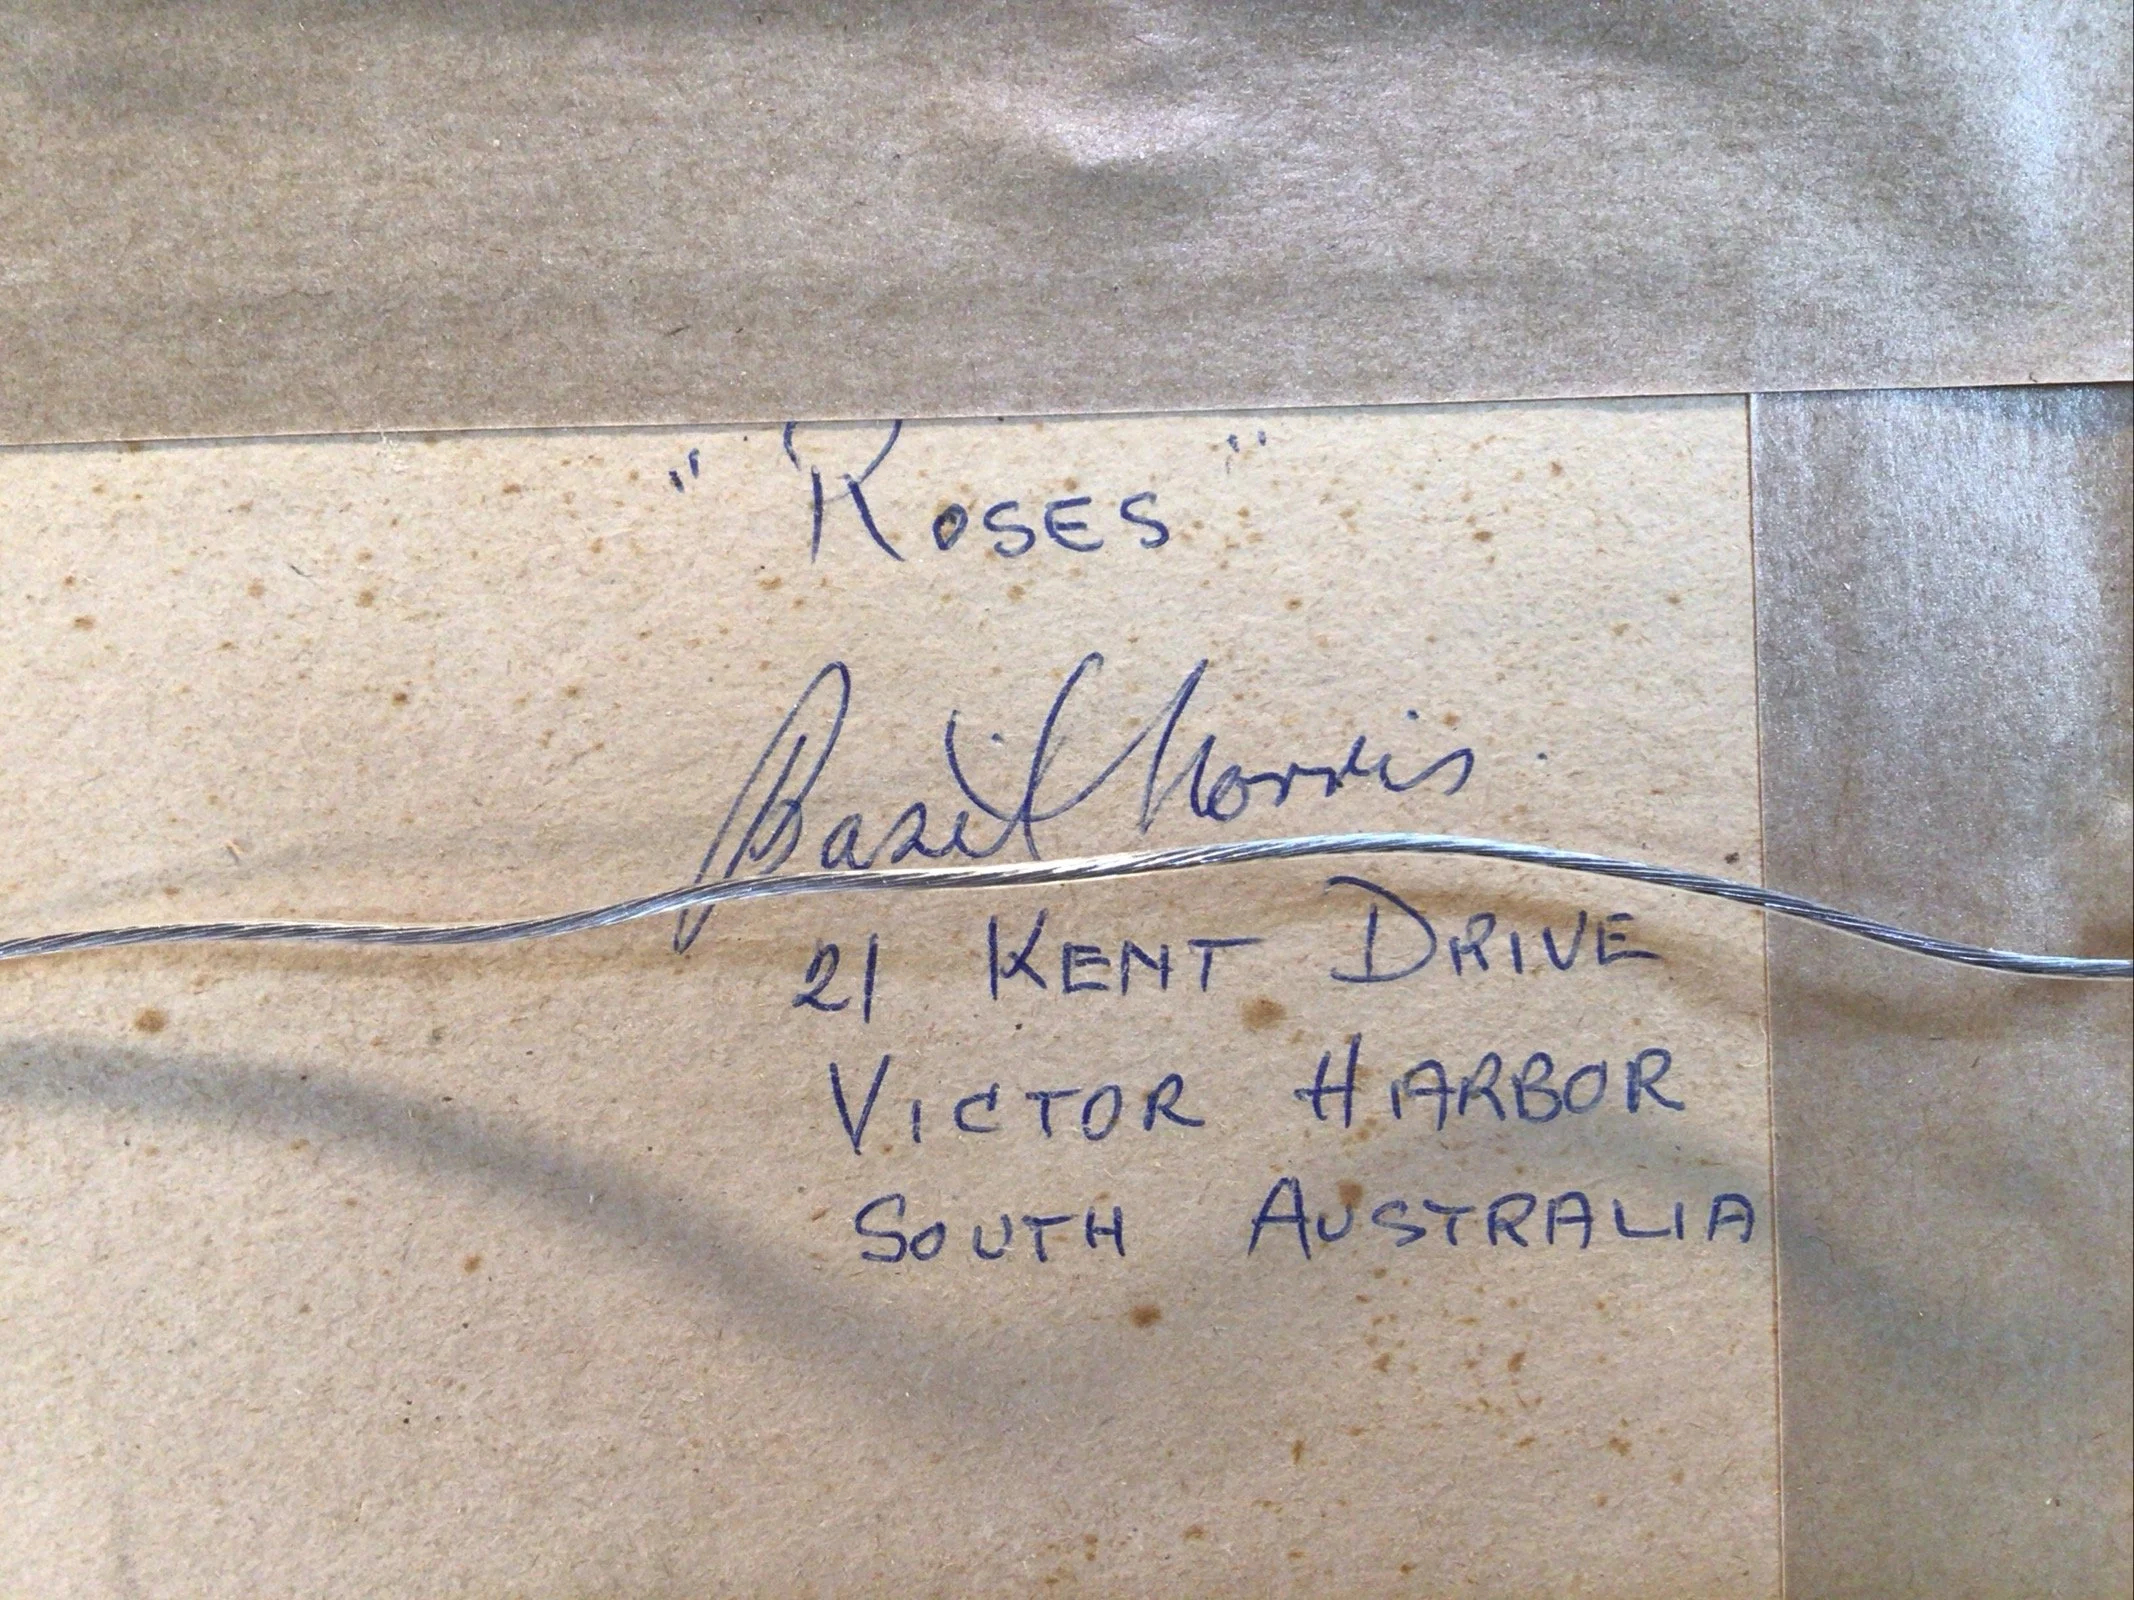 " Roses "
Basil Norris.
21 KENT DRIVE
VICTOR HARBOR
SOUTH AUSTRALIA